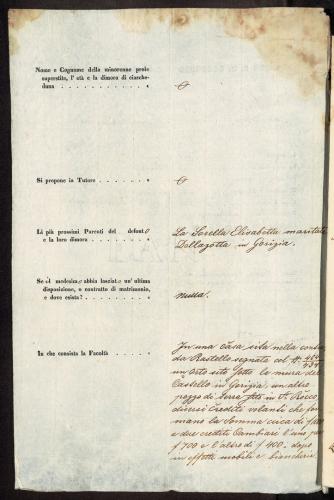 Nome e Cognome della minorenne prole
superstite, l' età e la dimora di ciasche-
duna . . . . . . . . . . . . „ O
Si propone in Tutore . . . . . . . „ O
Li più prossimi Parenti del defonto La Sorella Elisabetta maritata
e la loro dimora . . . . . . . . „ Dellazotta in Gorizia.
Se il medesimo abbia lasciato un' ultima
disposizione, o contratto di matrimonio, nessa.
e dove esista? . . . . . . . . . „
In che consista la Facoltà . . . . . „ In una Casa sita nella contra
di Rastello segnata col N.
un orto sito sotto le mura del
Castello in Gorizia, un altro
pezzo di terra sito in S. Rocco
diversi Crediti volanti che for
mano la Somma circa di f
e due crediti Cambiari l'uno per
f 700 e l'altro di f 400. dopo
in effetti mobili e biancheria